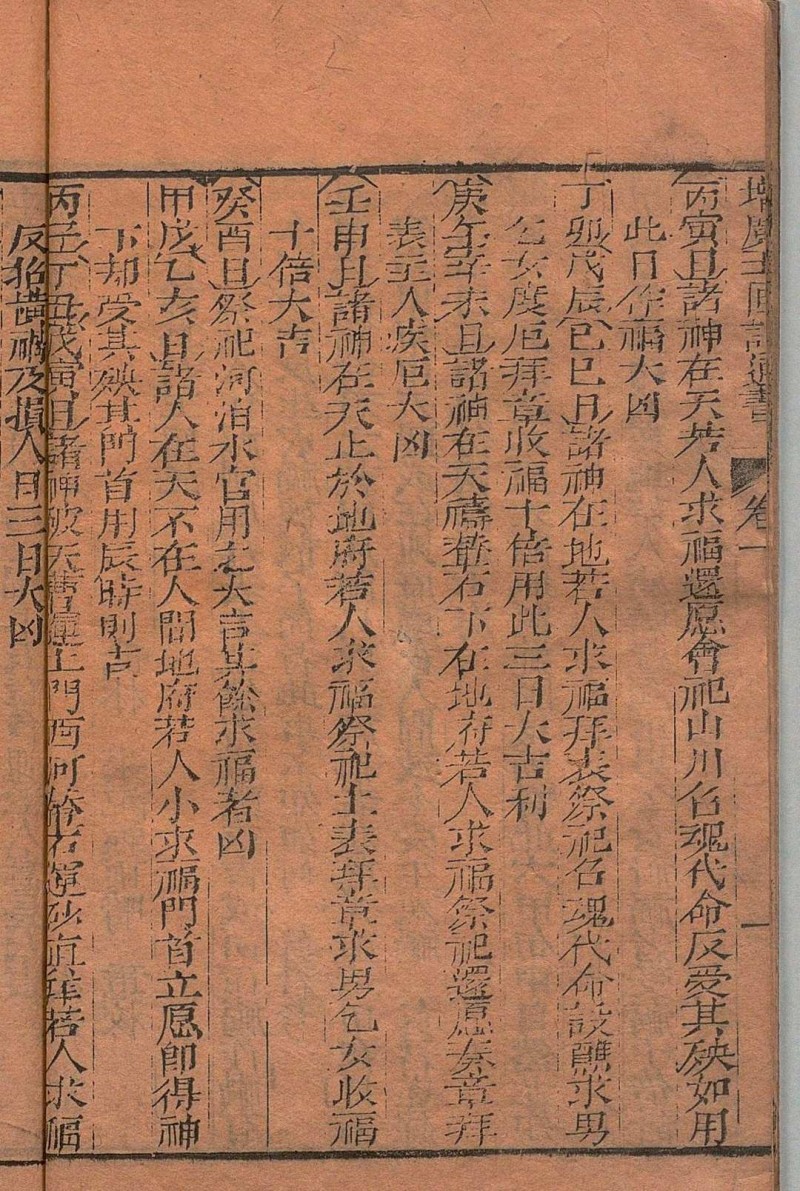 增廣玉匣記通書 卷一 一
丙寅日諸神在天若人求福還愿會祀山川名魂代命反受其殃如用
此日作福大凶
丁卯戊辰己巳日諸神在地若人求福拜表祭祀名魂代命設醮求男
乞女度厄拜章收福十倍用此三日大吉利
庚午辛未日諸神在天禱石下在地府若人求福祭祀還愿奏章拜
表主人疾厄大凶
壬申日諸神在天止於地府若人求福祭祀上表拜章求男乞女收福
十倍大吉
癸酉日祭祀河泊水官用之大吉其餘求福者凶
甲戌乙亥日諸人在天不在人間地府若人小求福門首立愿即得神
下却受其殃其門首用辰時則吉
丙子丁丑戊寅日諸神破天曹運土門西河若運砂直若人求福
反招橫禍及損人口三日大凶